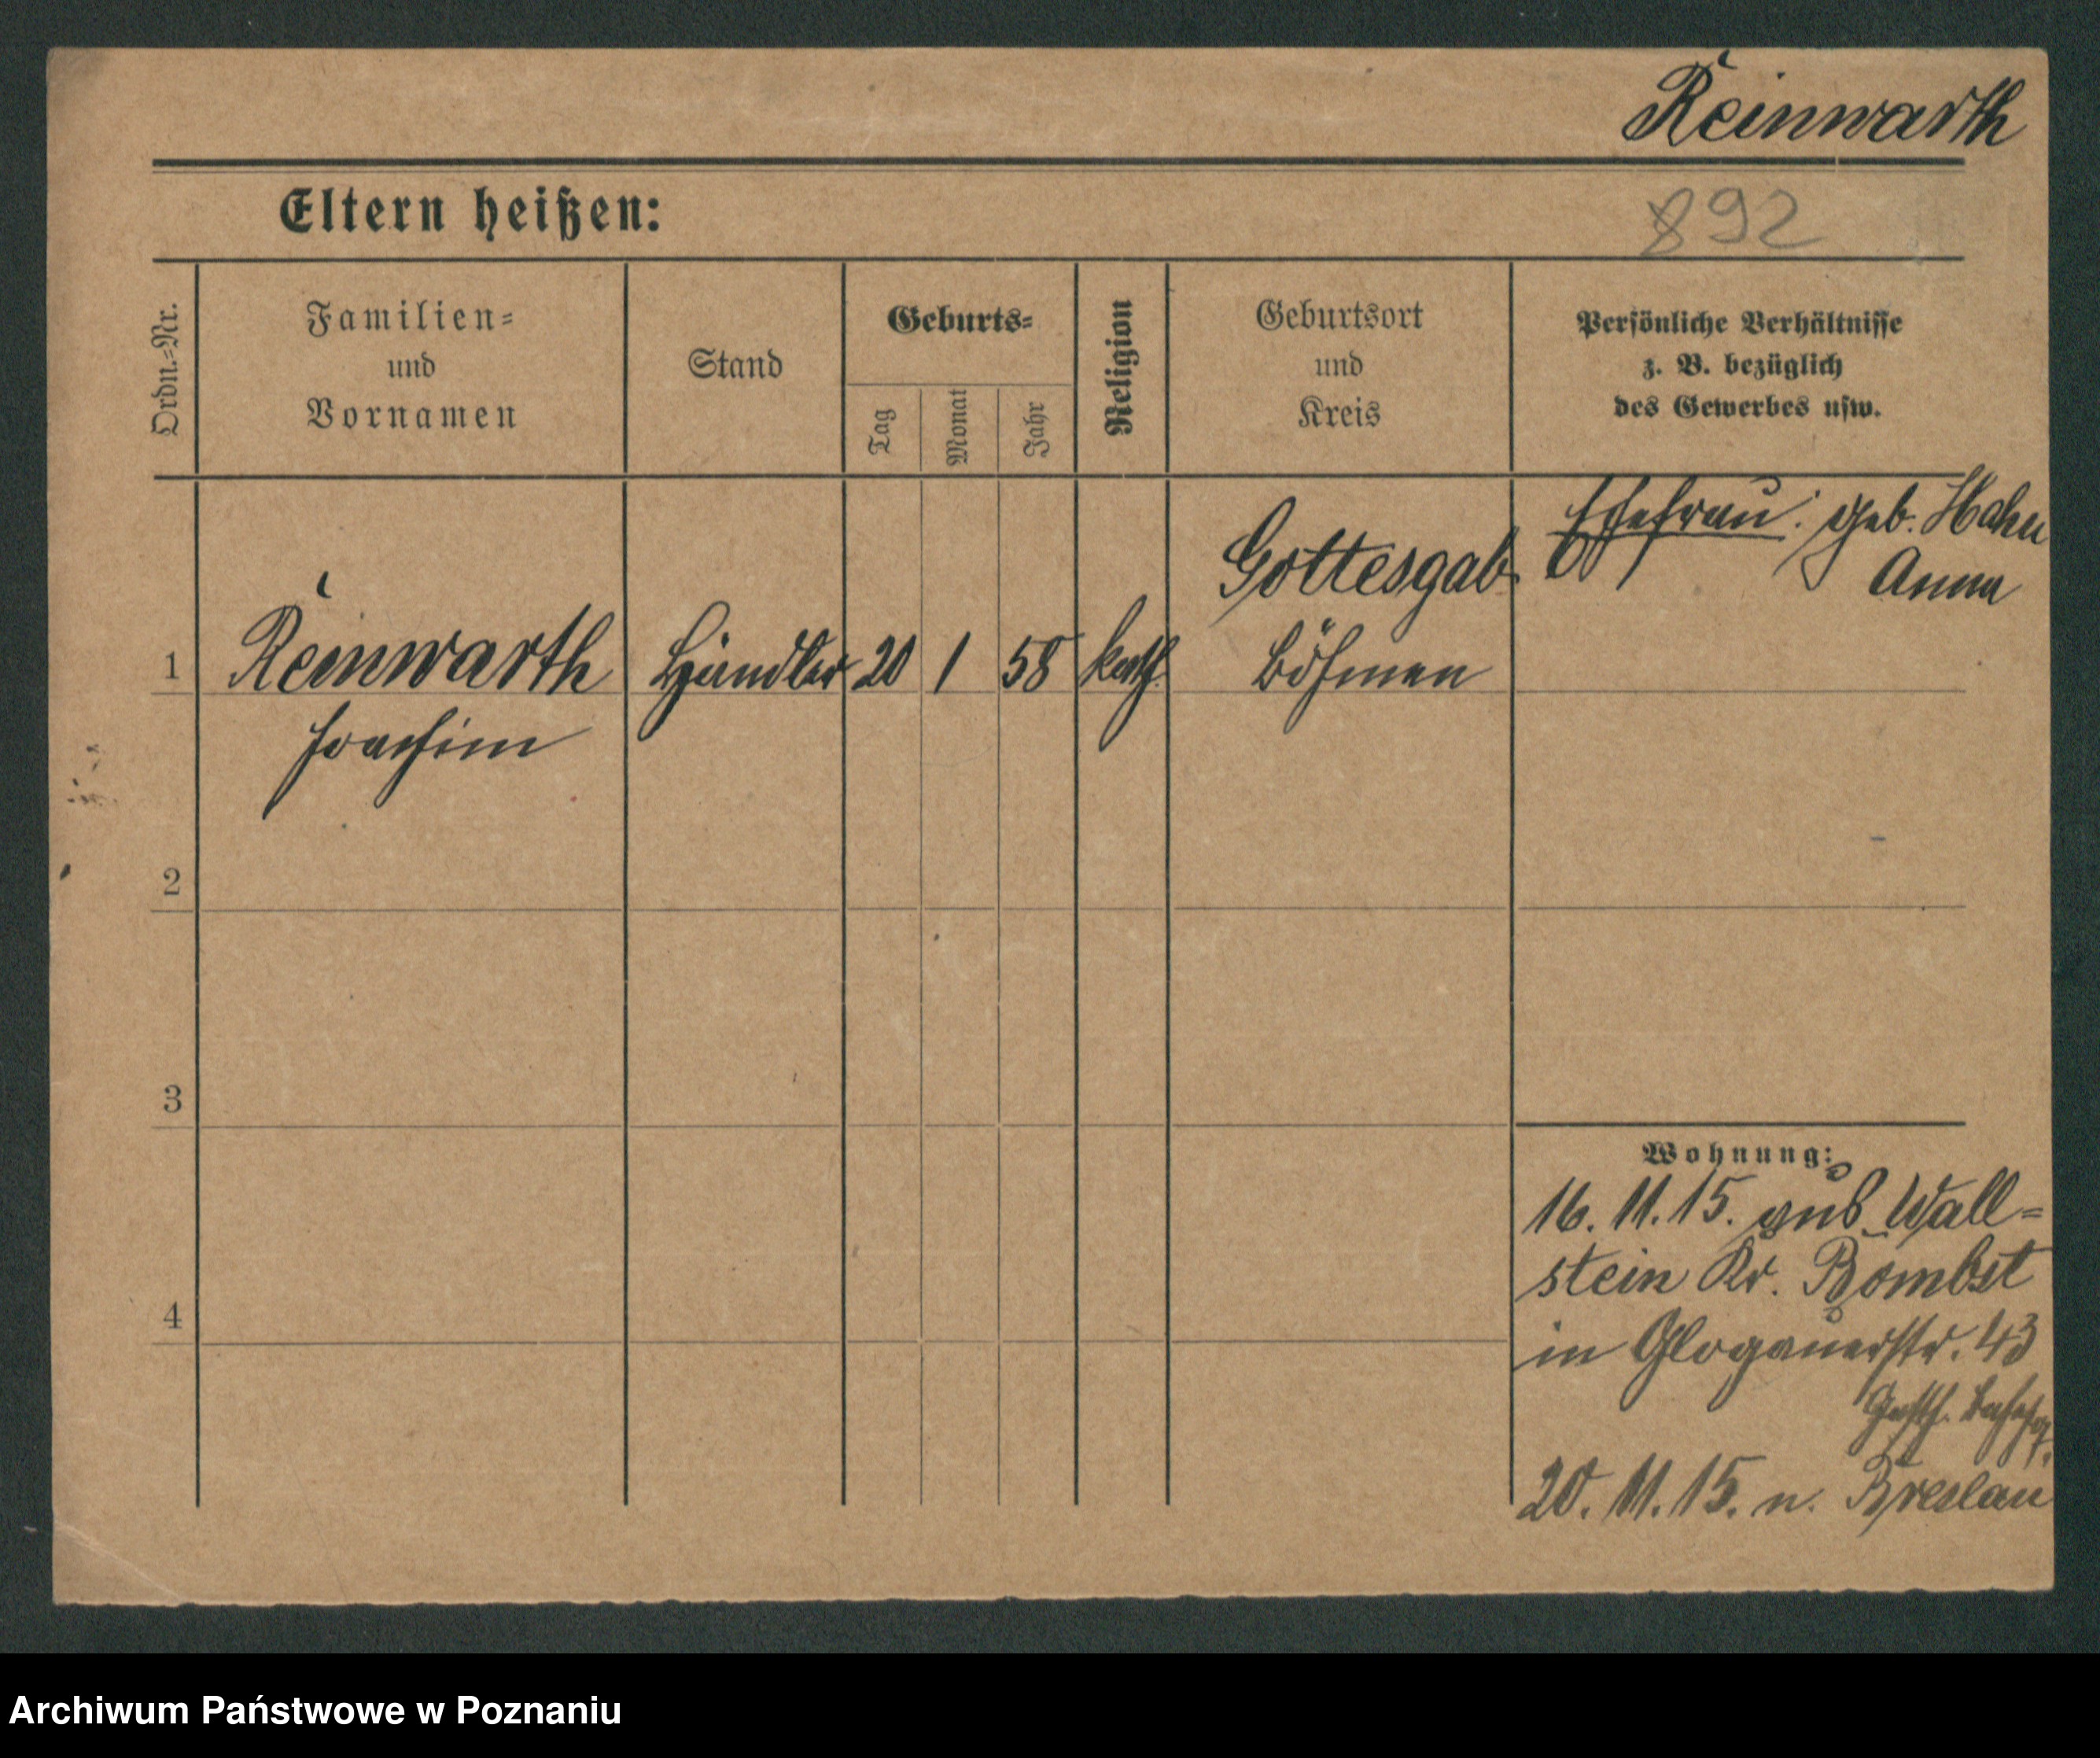 Reinwarth
Eltern heißen:
892
Ordn.-Nr.
Familien-
und
Vornamen
Stand
Geburts-
Tag
Monat
Jahr
Religion
Geburtsort
und
Kreis
Persönliche Verhältnisse
z. B. bezüglich
des Gewerbes usw.
Ehefrau: geb. Hahn
Anna
1 Reinwarth Händler 20 1 58 kath. Gottesgab
Böhmen
Joachim
2
3
4
Wohnung:
16. 11. 15. aus Wall-
stein Kr. Bombst
in Glogauerstr. 43
Gasth.
20. 11. 15. n. Breslau
Archiwum Państwowe w Poznaniu